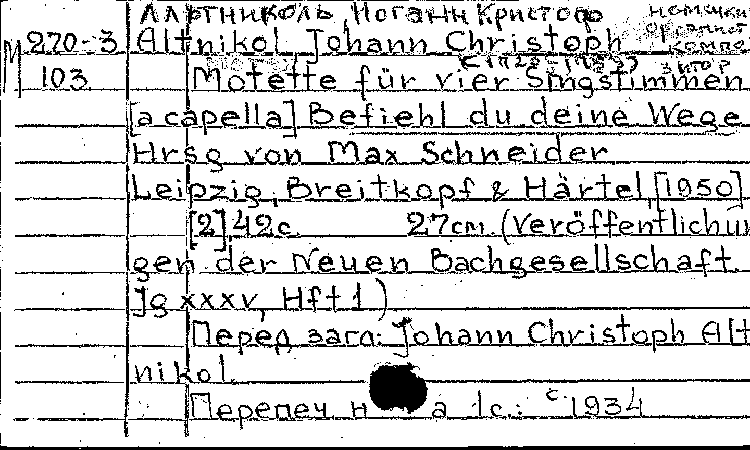 Альтниколь, Иоганн Кристоф
немецкий органист композитор
М 270-3 Altnikol, Johann Christoph
103 Motette für vier Singstimmen
[a capella] Befiehl du deine Wege
Hrsg von Max Schneider
Leipzig, Breitkopf & Härtel, [1950]
[2], 42 с. 27 см. (Veröffentlichun
gen der Neuen Bachgesellschaft.
Jg XXXV, Hft 1)
Перед загл: Johann Christoph Alt
nikol.
Перепеч на 1 с.: с 1934